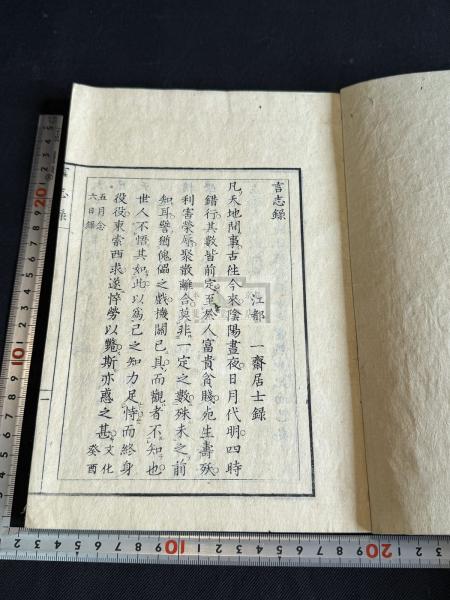 言志錄
江都 一齋居士錄
凡天地間事古徃今來陰陽晝夜日月代明四時
錯行其數皆前定至於人富貴貧賤死生壽殀
利害榮辱聚散離合莫非一定之數殊未之前
知耳譬猶傀儡之戲機關已具而觀者不知也
世人不悟其如此以爲己之知力足恃而終身
役役東索西求遂悴勞以斃斯亦惑之甚 文化癸酉
五月念六日錄
言志錄
一